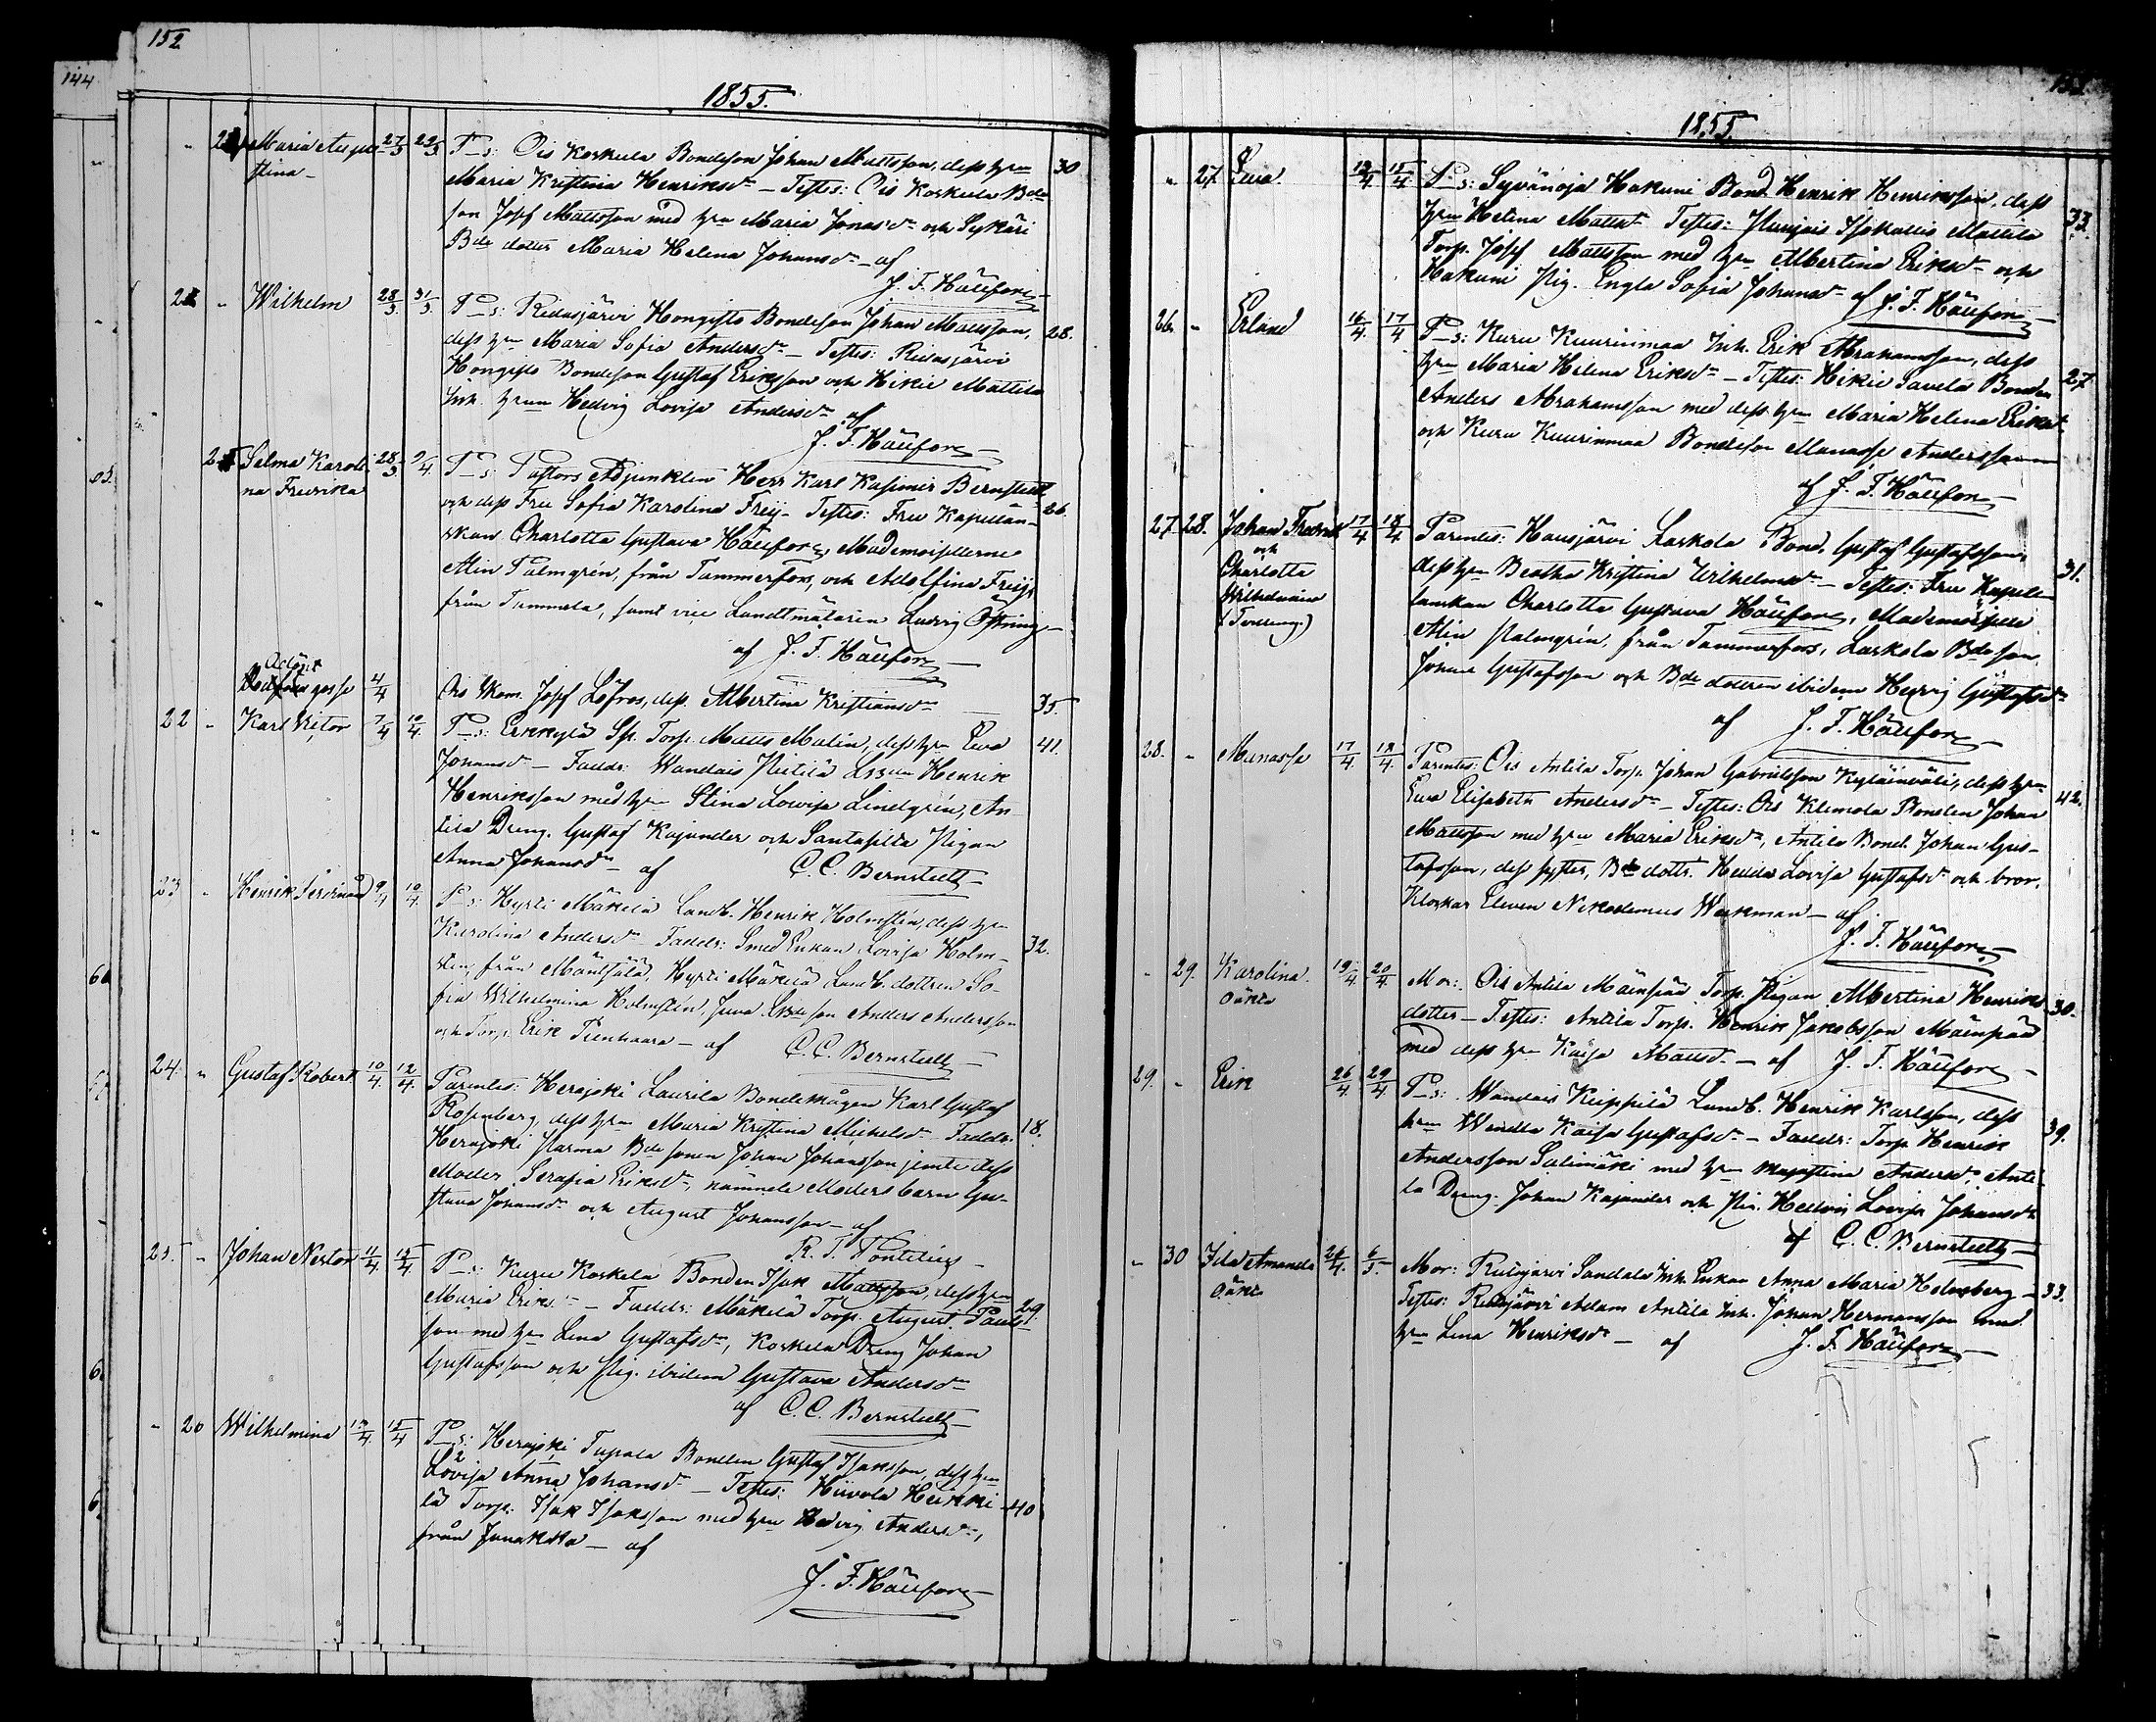 152
144
1855.
Maria Augu- 27/3 29/3 P_s: Ois Koskula Bondeson Johan Mattsson, dess h_n 30
stina - Maria Kristina Henriksd_r - Testes: Ois Koskela Bde
son Josef Mattsson med h_n Maria Jonasd_r och Sykäri
Bde dotter Maria Helena Johansd_r - af
J. F. Hällfors
21 - Wilhelm 28/3 31/3 P_s: Ridasjärvi Hongisto Bondeson Johan Mattsson, 28.
dess h_n Maria Sofia Andersd_r - Testes: Ridasjärvi
Hongisto Bondeson Gustaf Eriksson och Hikie Mattila
Inh. h_n Hedvig Lovisa Andersd_r af
J. F. Hällfors
Selma Karoli- 28/3 9/4 P_s: Pastors Adjunkten Herr Karl Kasimir Bernstedt
na Fredrika och dess Fru Sofia Karolina Freij - Testes: Fru Kapellan- 26.
skan Charlotta Gustava Hällfors, Mademoisellerne
Alin Palmgrén, från Tammerfors, och Adolfina Freij,
från Tammela, samt vice Landtmätaren Ludvig Östring -
af J. F. Hällfors
Dödfödd gosse 4/4 Ois Skom. Josef Löfros, dess Albertina Kristiansd_r 35.
22 - Karl Viktor 7/4 10/4 P_s: Erkkylä Sp. Torp. Matts Malin, dess h_n Eva 41.
Johansd_r - Faddr: Wandais Pietilä Henrik
Henriksson med h_n Stina Lovisa Lindgrén, An-
tila Dreng. Gustaf Kajander och Santasilta Pigan
Anna Johansd_r af C. C. Bernstedt
23 - Henrik Ferdinand 9/4 10/4 P_s: Hyrti Mäkelä Landb. Henrik Holmstén, dess h_n
Karolina Andersd_r Faddr: Smed Enkan Lovisa Holm- 32.
stén, från Mäntsälä, Hyrti Mäkelä Landb. dottren So-
fia Wilhelmina Holmstén, Anders Andersson
och Torp. Erik Pienhaara - af C. C. Bernstedt
24. - Gustaf Robert 10/4 12/4 Parentes: Herajoki Laurila Bondemågen Karl Gustaf
Rosenberg, dess h_n Maria Kristina Michelsd_r Faddr: 18.
Herajoki Parma Bde sonen Johan Johansson jemte dess
Moder Serafia Eriksd_r, nämnde Moders barn Gu-
stava Johansd_r och August Johansson - af
R. T. Pontelius
25. - Johan Nestor 11/4 12/4 P_s: Kuru Koskela Bonden Isak Mattsson, dess h_n
Maria Eriksd_r - Faddr: Mäkelä Torp. August Pauls- 29.
son med h_n Lena Gustafsd_r, Koskela Dreng Johan
Gustafsson och Pig. ibidem Gustava Andersd_r
af C. C. Bernstedt
- 20 Wilhelmina 12/4 15/4 P_s: Herajoki Tupala Bonden Gustaf Isaksson, dess h_n
Lovisa Anna Johansd_r - Testes: Hiivola Heikki- 40
lä Torp. Isak Isaksson med h_n Hedvig Andersd_r,
från Janakkala - af
J. F. Hällfors
1855
- 27. Eva. 12/4 15/4 P_s: Syvänoja Hakuni Bond. Henrik Henriksson, dess 33.
h_n Helena Mattsd_r Testes: Isokallio Mattila
Torp. Josef Mattsson med h_n Albertina Eriksd_r och
Hakuni Pig. Engla Sofia Johansd_r af J. F. Hällfors
26. - Erland 16/4 17/4 P_s: Kuru Kuurinmaa Inh. Erik Abrahamsson, dess
h_n Maria Helena Eriksd_r - Testes: Hikie Savela Bonden 27
Anders Abrahamsson med dess h_n Maria Helena Eriksd_r
och Kuru Kuurinmaa Bondeson Manasse Andersson
af J. F. Hällfors
27. 28. Johan Fredrik 17/4 18/4 Parentes: Hausjärvi Laskola Bond. Gustaf Gustafsson,
och dess h_n Beatha Kristina Wilhelmsd_r - Testes: Fru Kapel- 31.
Charlotta lanskan Charlotta Gustava Hällfors, Mademoiselle
Wilhelmina Alin Palmgrén, från Tammerfors, Laskola Bde son
(Tvilling.) Johan Gustafsson och Bde dottren ibidem Hedvig Gustafsd_r
af J. F. Hällfors
28. - Manasse 17/4 18/4 Parentes: Ois Antila Torp. Johan Gabrielsson Kyläinväli, dess h_n
Eva Elisabeth Andersd_r - Testes: Ois Klemola Bonden Johan 42.
Mattsson med h_n Maria Eriksd_r, Antila Bond. Johan Gus-
tafsson, dess syster, Bde dottr. Hedda Lovisa Gustafsd_r och bror,
Klockar Eleven Nikodemus Werkman - af
J. F. Hällfors
- 29. Karolina 19/4 20/4 Mor: Ois Antila Mäenpää Torp. Pigan Albertina Henriks- 30.
oäkta dotter - Testes: Antila Torp. Henrik Jakobsson Mäenpää
med dess h_n Kaisa Mattsd_r - af J. F. Hällfors
29. - Erik 26/4 29/4 P_s: Wandais Keippilä Landb. Henrik Karlsson, dess
h_n Wendla Kaisa Gustafsd_r - Faddr: Torp. Henrik 39.
Andersson Salimäki med h_n Majastina Andersd_r, Anti-
la Dreng. Johan Kajander och Pig. Hedvig Lovisa Johansd_r
af C. C. Bernstedt
- 30 Ida Amanda 26/4 6/5 Mor: Ridasjärvi Sandala Inh. Enkan Anna Maria Holmberg - 33.
oäkta Testes: Ridasjärvi Adam Antila Inh. Johan Hermansson med
h_n Lena Henriksd_r - af J. F. Hällfors